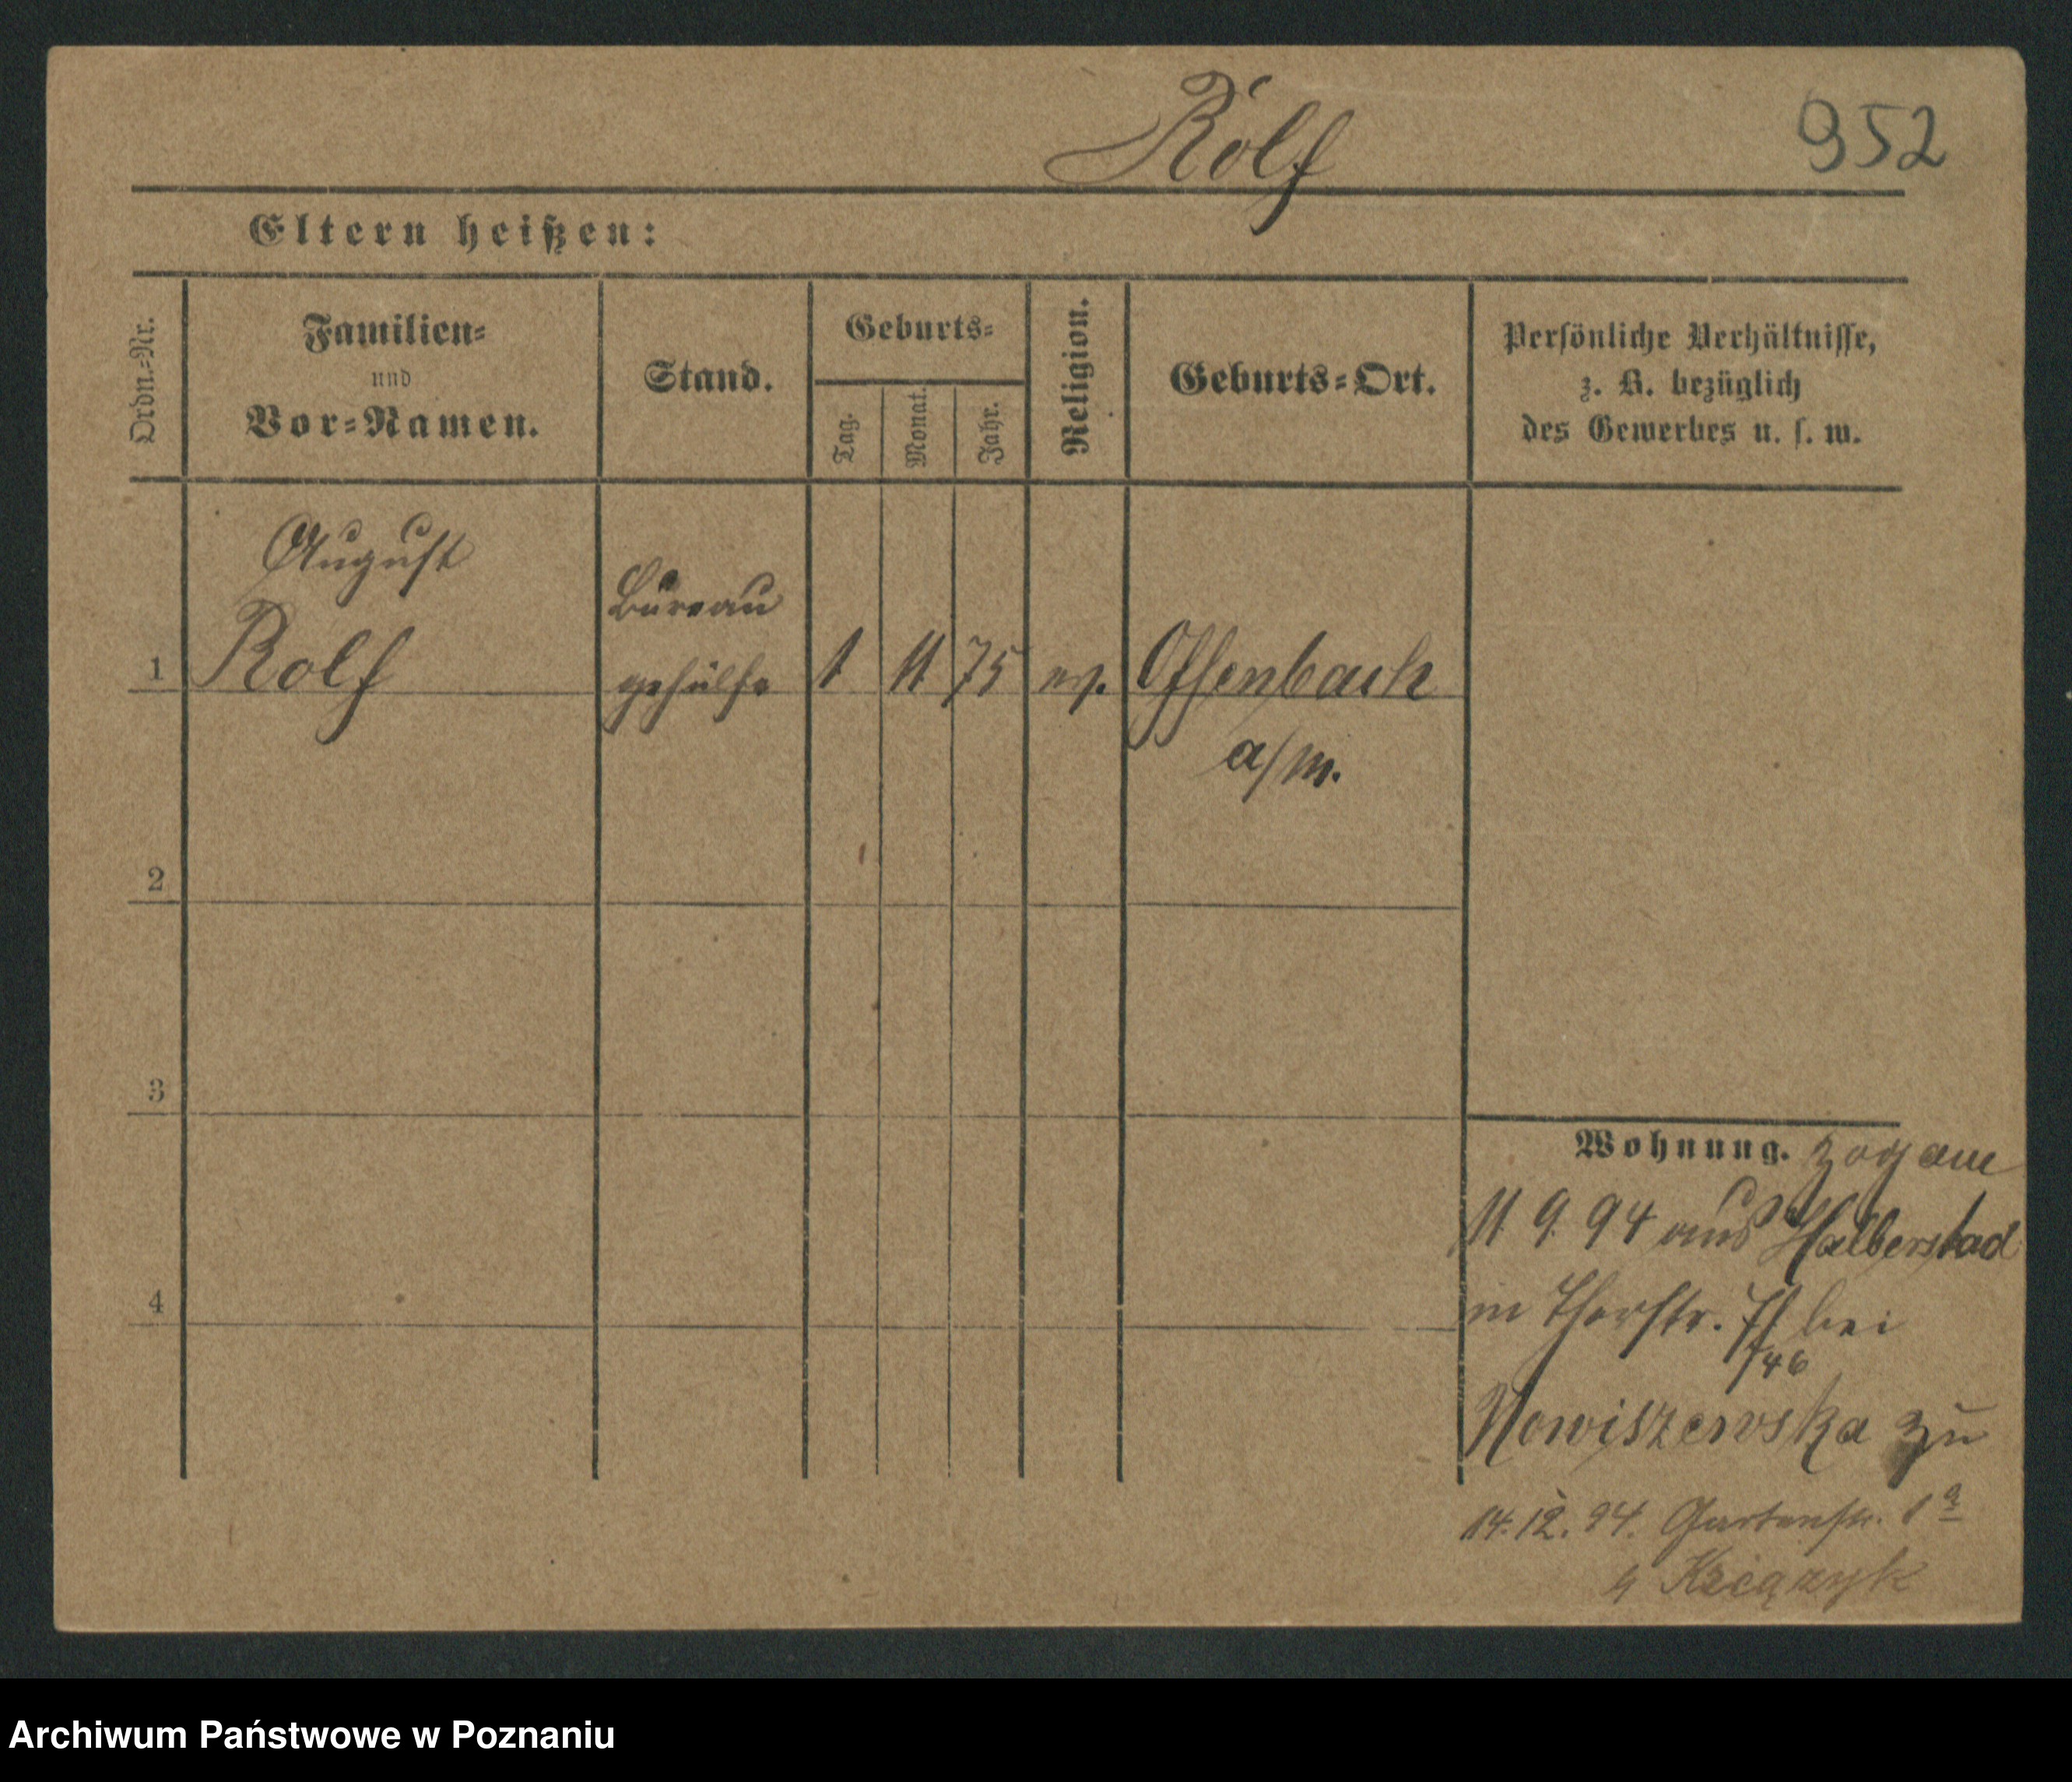 Rolf
952
Eltern heißen:
Ordn.-Nr.
Familien-
und
Vor-Namen.
Stand.
Geburts-
Tag.
Monat.
Jahr.
Religion.
Geburts-Ort.
Persönliche Verhältnisse,
z. B. bezüglich
des Gewerbes u. s. w.
August
Rolf
Bureau
gehülfe
1
1 11 75 ev. Offenbach
a/M.
2
3
4
Wohnung. zog am
11. 9. 94 aus Halberstad
in Thorstr. bei
746
Nowiszewska zu
14. 12. 94. Gartenstr. 1a
Archiwum Państwowe w Poznaniu